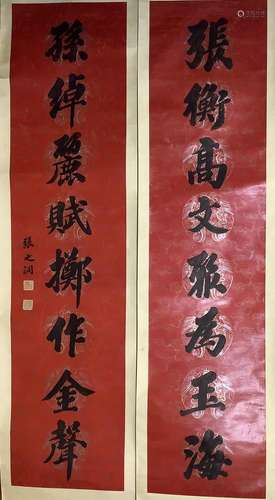 張衡髙文為玉海
孫綽麗賦擲作金聲
張之洞